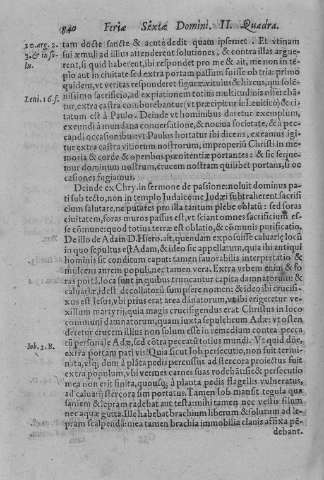 840 Feriæ Sextæ Domini, II. Quadra.
20. arg. 2.
tam docte sancte & acute dedit quam ipsemet. Et vtinam
sui æmuli ad illius attenderent solutiones, & contra illas argue-
rent, si quid haberent, ibi respondet pro me & ait, me non in te-
plo aut in ciuitate sed extra portam passum fuisse ob tria: primò
quidem, vt veritas responderet figuræ vituli & hirci, qui
nissimo sacrificio, ad expiationem totius multitudinis
Leui. 16. f.
tur, extra castra comburebantur (vt præcipitur in Leuitico) & ci-
tatum est à Paulo. Deinde vt hominibus daretur exemplum,
exeundi à mundana conuersatione, & nociua societate, & à pec-
candi occasionibus vt Paulus hortatur ibi dicens, exeamus igi-
tur extra castra vitiorum nostrorum, improperiũ Christi in me-
moria & corde & operibus pœnitentiæ portantes: & sic seque-
mur dominum nostrum, crucem nostram quilibet portans, si oc-
casiones fugiamus.
Deinde ex Chry. in sermone de passione: noluit dominus pa-
ti sub tecto, non in templo Judaico ne Judæi subtraherent sacrifi-
cium salutare, ne putares pro illa tantum plebe oblatũ: sed foras
ciuitatem, foras muros passus est, vt sciant omnes sacrificium es-
se cõmune: quod totius terræ est oblatio, & cõmunis purificatio.
De illo de Adam D. Hiero. ait, quendam exposuisse caluariæ locũ
in quo sepultus est Adam, & ideo sic appellatum, quia ibi antiqui
hominis sit conditum caput: tamen fauorabilis interpretatio &
mulcens aurem populi, nec tamen vera. Extra vrbem enim & fo-
ras portã, loca sunt in quibus truncantur capita damnatorum &
caluariæ, id est decollatorũ sumpsere nomen: & ideo ibi crucifi-
xus est Iesus, vbi prius erat area dãnatorum, vt ibi erigeretur ve-
xillum martyrij, quia magis crucifigendus erat Christus in loco
communi damnatorum, quam iuxta sepulchrum Adæ: vt osten-
deretur crucem illius non solum esse in remedium contra pecca-
tũ personale Adæ, sed cõtra peccatũ totius mundi. Vt quid dux,
Job. 2. B.
extra portam pati vis? Quia sicut Iob persecutio, non fuit termi-
nata, vsq; dum à plãta pedis percussus ad stercora proiectus fuit
extra populum, vbi vermes carnes suas rodebãt: sic & persecutio
mea non erit finita, quousq; à planta pedis flagellis vulneratus,
ad caluariæ stercora sim portatus. Tamen Iob mansit tegula qua
saniem & lepram radebat aut testa: mihi tamen nec vestis filum
nec aquæ gutta. Ille habebat brachium liberum & solutum ad le-
pram scalpendã: mea tamen brachia immobilia clauis affixa pẽ-
debant.